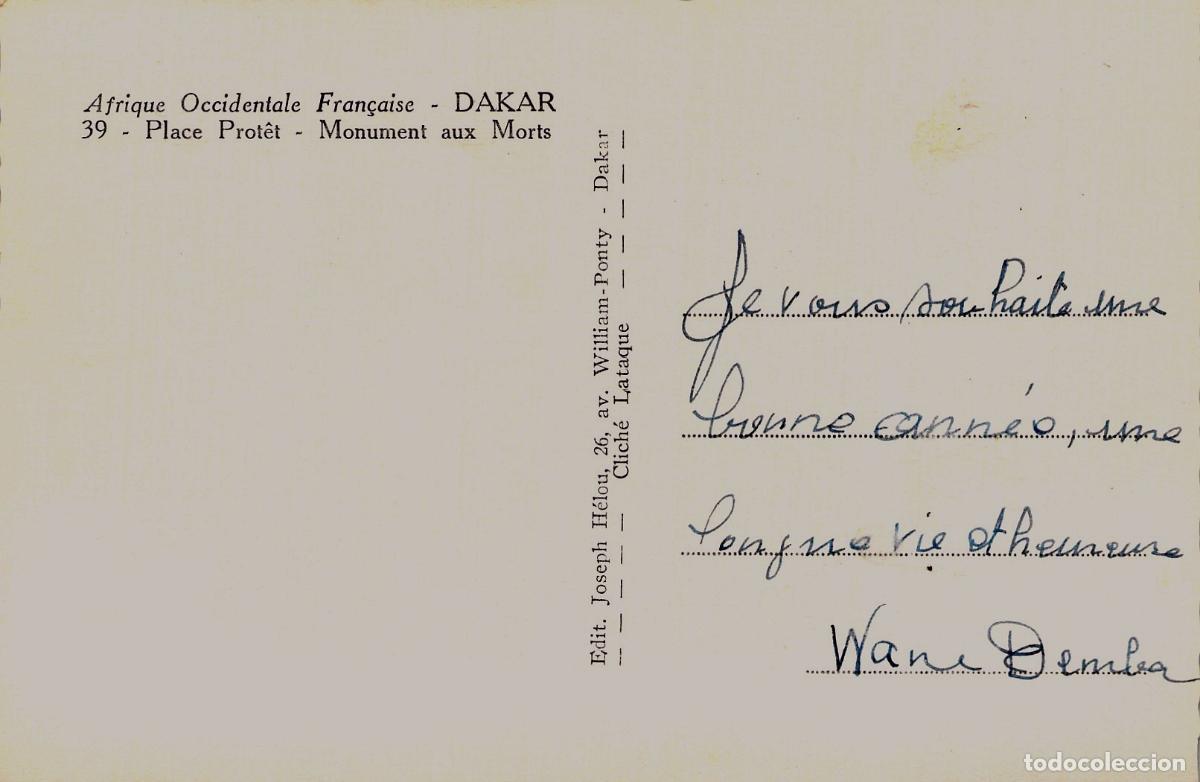 Afrique Occidentale Française - DAKAR
39 - Place Protêt - Monument aux Morts
Edit. Joseph Hélou, 26, av. William-Ponty - Dakar
Cliché Lataque
Je vous souhaite une
bonne année, une
longue vie et heureuse
Wane Demba
todocoleccion